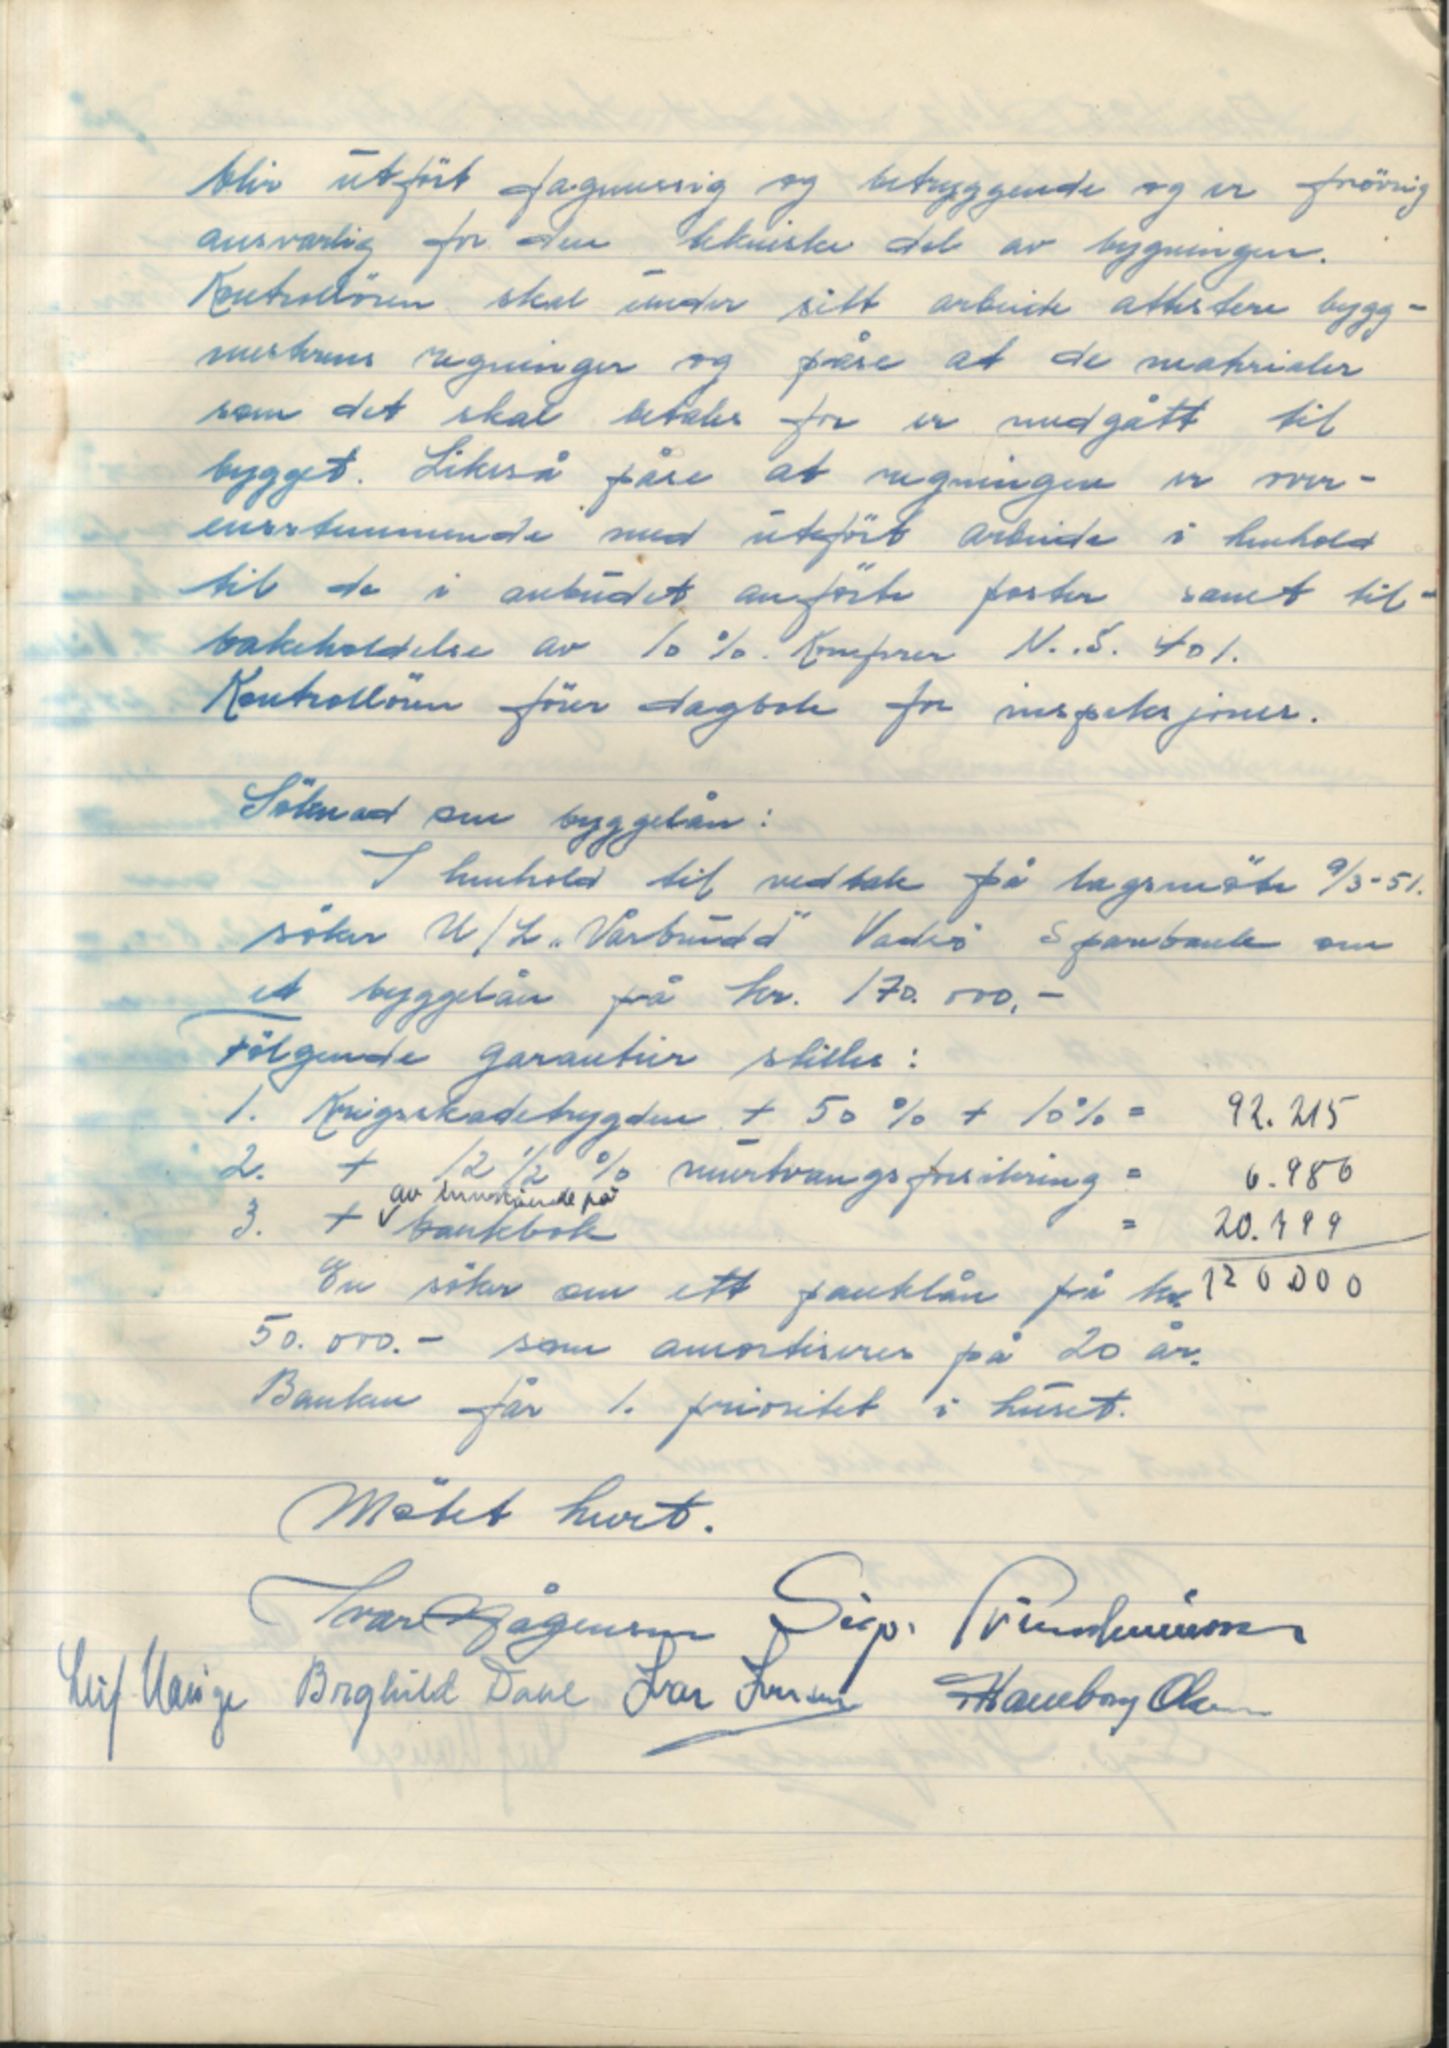 blir utfört fagmessig og betryggende og er forövrig
ansvarlig for den tekniske del av bygningen.
Kontrollören skal under sitt arbeide attestere bygg-
mesterens regninger og påse at de materialer
som det skal betales for er medgått til
bygget. Likeså påse at regningen er over-
ensstemmende med utfört arbeide i henhold
til de i anbudet anförte poster samt til-
bakeholdelse av 10 %. Konfrer N.S. 401.
Kontrollören förer dagbok for inspeksjoner.
Söknad om byggelån:
I henhold til vedtak på lagsmöte 9/3-51.
söker U/L „Vårbrudd" Vadsö Sparebank om
et byggelån på kr. 170.000,-
Fölgende garantier stilles:
1. Krigsskadetrygden + 50 % + 10% = 92.215
2. + 12 1/2 % murtvangsforsikring = 6.986
av innestående på
3. + bankbok = 20.799
En söker om ett panklån på kr. 120000
50.000.- som amortiseres på 20 år.
Banken får 1. prioritet i huset.
Mötet hevet.
Ivar Hågensen Sigp.
Leif Hauge Borghild Dahl Ivar Iversen Hamborg Olsen